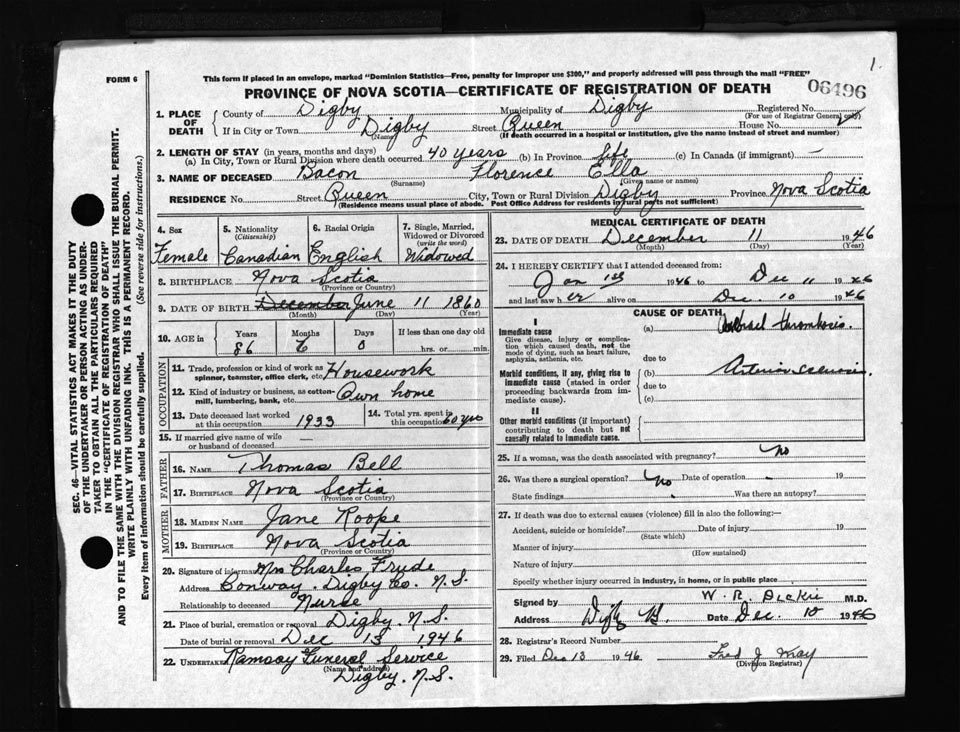 1.
FORM 6
This form if placed in an envelope, marked "Dominion Statistics—Free, penalty for improper use $300," and properly addressed will pass through the mail "FREE"
06496
PROVINCE OF NOVA SCOTIA—CERTIFICATE OF REGISTRATION OF DEATH
1. PLACE OF DEATH
County of Digby Municipality of Digby Registered No.
(For use of Registrar General only)
If in City or Town Digby Street Queen House No.
(Name) (If death occurred in a hospital or institution, give the name instead of street and number)
2. LENGTH OF STAY (in years, months and days)
(a) In City, Town or Rural Division where death occurred 40 years (b) In Province life (c) In Canada (if immigrant) —
3. NAME OF DECEASED Bacon Florence Ella
(Surname) (Given name or names)
RESIDENCE No. Street Queen City, Town or Rural Division Digby Province Nova Scotia
(Residence means usual place of abode. Post Office Address for residents in rural parts not sufficient)
4. Sex Female
5. Nationality (Citizenship) Canadian
6. Racial Origin English
7. Single, Married, Widowed or Divorced (write the word) Widowed
8. BIRTHPLACE Nova Scotia
(Province or Country)
9. DATE OF BIRTH December June 11 1860
(Month) (Day) (Year)
10. AGE in Years Months Days If less than one day old
86 6 0 hrs. or min.
OCCUPATION
11. Trade, profession or kind of work as spinner, teamster, office clerk, etc. Housework
12. Kind of industry or business, as cotton-mill, lumbering, bank, etc. Own home
13. Date deceased last worked at this occupation 1933
14. Total yrs. spent in this occupation 60 yrs
15. If married give name of wife or husband of deceased —
FATHER
16. NAME Thomas Bell
17. BIRTHPLACE Nova Scotia
(Province or Country)
MOTHER
18. MAIDEN NAME Jane Roope
19. BIRTHPLACE Nova Scotia
(Province or Country)
20. Signature of informant Mrs Charles Frude
Address Conway, Digby Co. N.S.
Relationship to deceased Nurse
21. Place of burial, cremation or removal Digby. N.S.
Date of burial or removal Dec 13 1946
22. UNDERTAKER Ramsay Funeral Service
(Name and address)
Digby. N.S.
MEDICAL CERTIFICATE OF DEATH
23. DATE OF DEATH December 11 1946
(Month) (Day) (Year)
24. I HEREBY CERTIFY that I attended deceased from:
Jan 1st 1946 to Dec 11 1946
and last saw her alive on Dec. 10 1946
CAUSE OF DEATH
I
Immediate cause
Give disease, injury or complication which caused death, not the mode of dying, such as heart failure, asphyxia, asthenia, etc.
(a) thrombosis.
due to
Morbid conditions, if any, giving rise to immediate cause (stated in order proceeding backwards from immediate cause).
(b)
due to
(c)
II
Other morbid conditions (if important) contributing to death but not causally related to immediate cause.
25. If a woman, was the death associated with pregnancy? No
26. Was there a surgical operation? No Date of operation 19
State findings Was there an autopsy?
27. If death was due to external causes (violence) fill in also the following:—
Accident, suicide or homicide? Date of injury 19
(State which)
Manner of injury
(How sustained)
Nature of injury
Specify whether injury occurred in industry, in home, or in public place
Signed by W. R. Dickie M.D.
Address Digby Date Dec. 1946
28. Registrar's Record Number
29. Filed Dec 13 1946 Fred J.
(Division Registrar)
SEC. 46—VITAL STATISTICS ACT MAKES IT THE DUTY
OF THE UNDERTAKER OR PERSON ACTING AS UNDER-
TAKER TO OBTAIN ALL THE PARTICULARS REQUIRED
IN THE "CERTIFICATE OF REGISTRATION OF DEATH"
AND TO FILE THE SAME WITH THE DIVISION REGISTRAR WHO SHALL ISSUE THE BURIAL PERMIT.
WRITE PLAINLY WITH UNFADING INK. THIS IS A PERMANENT RECORD.
Every item of information should be carefully supplied. (See reverse side for instructions.)